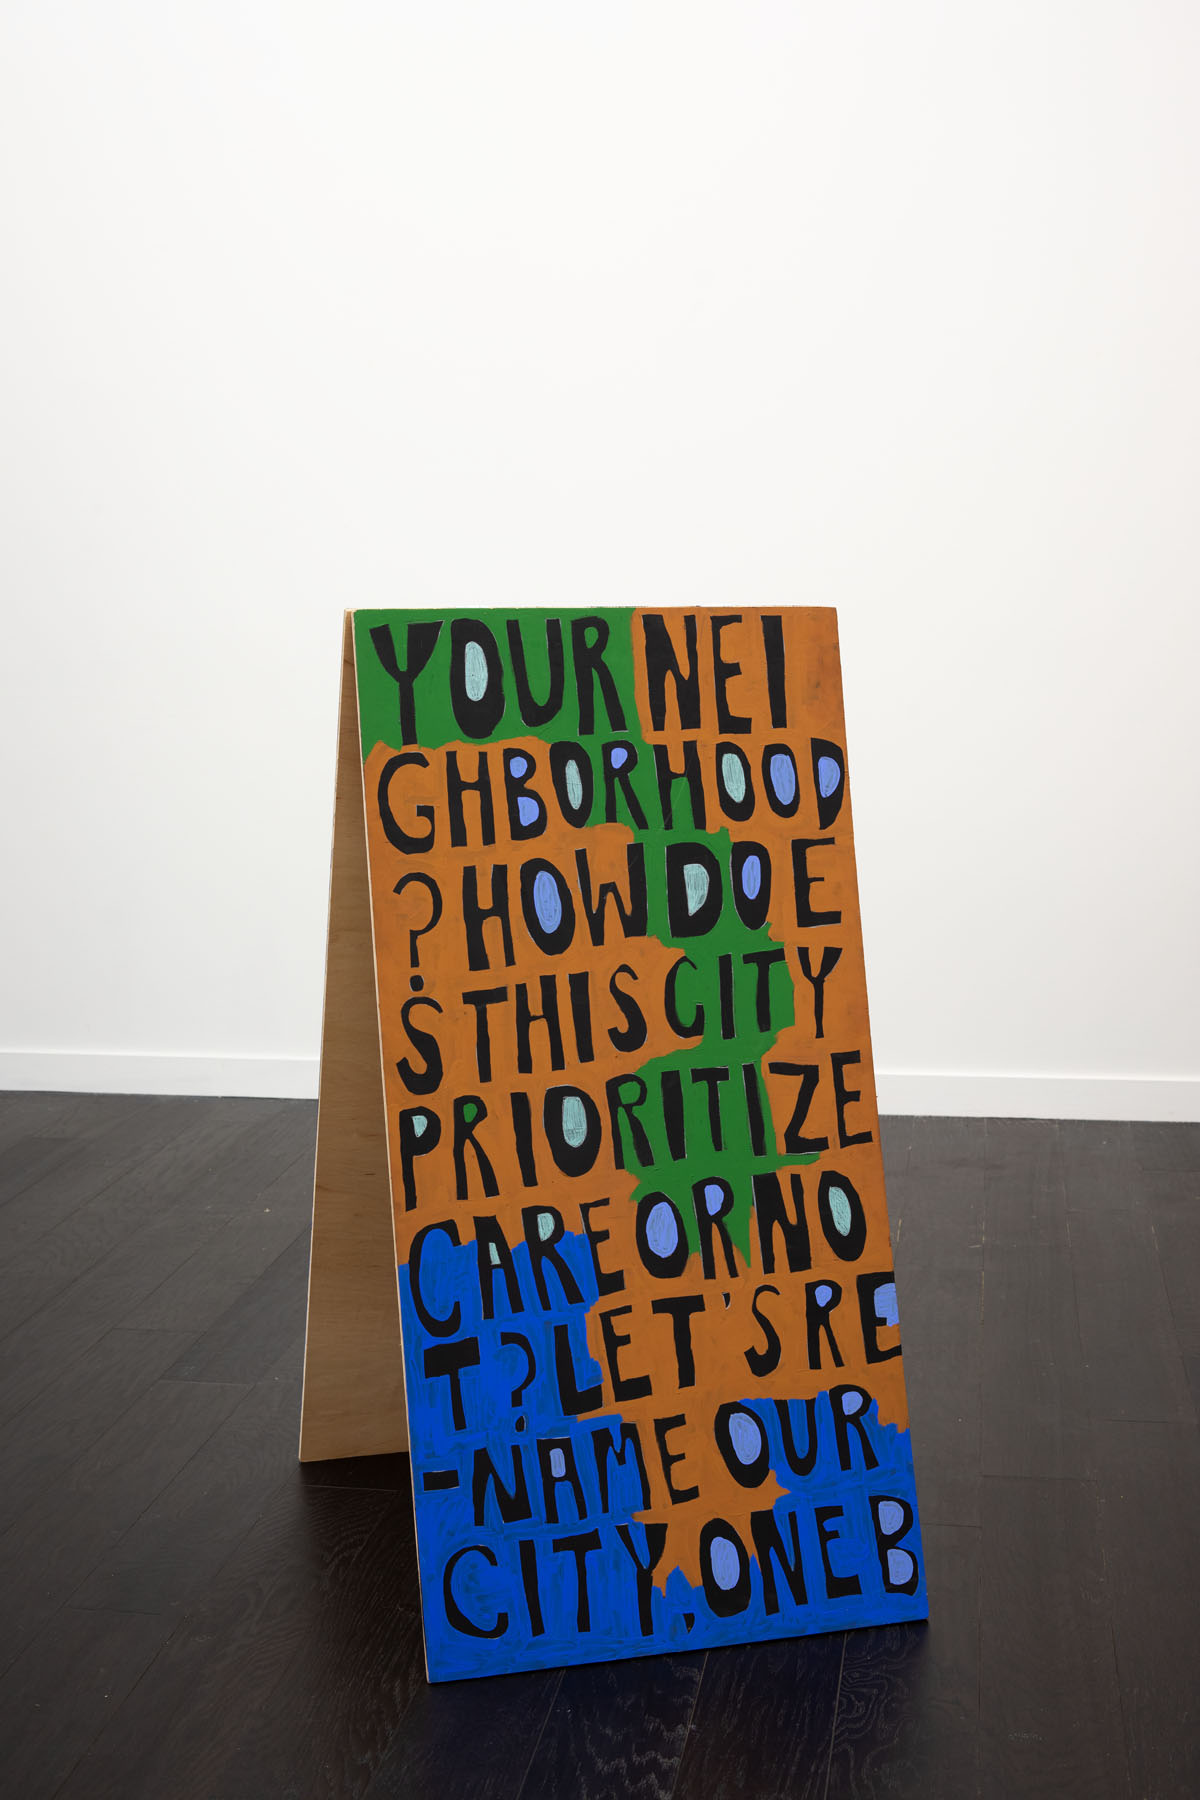 YOUR NEI
GHBORHOOD
? HOW DO E
S THIS CITY
PRIORITIZE
CARE OR NO
T? LET'S RE
-NAME OUR
CITY, ONE B